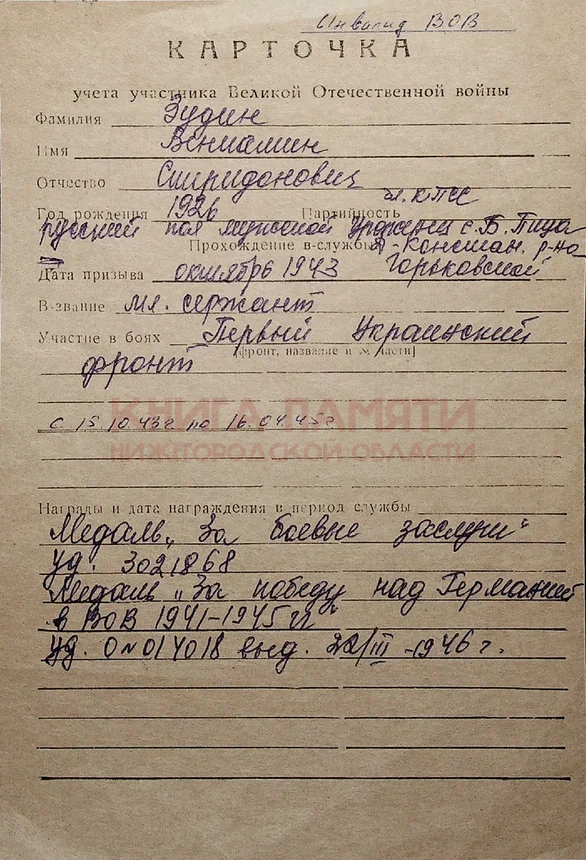 Инвалид ВОВ
КАРТОЧКА
учета участника Великой Отечественной войны
Фамилия Зудин
Имя Вениамин
Отчество Спиридонович
чл. КПСС
Год рождения 1926 Партийность
русский пол мужской Урожен. с. Б. Пица
Прохождение в-службы Д-Констан. р-на
Дата призыва октябрь 1943 Горьковской
В-звание мл. сержант
Участие в боях Первый Украинский
[фронт, название и № части]
фронт
КНИГА ПАМЯТИ
с 15.10.43г по 16.04.45г
НИЖЕГОРОДСКОЙ ОБЛАСТИ
Награды и дата награждения в период службы
Медаль „За боевые заслуги"
уд. 3021868
Медаль „За победу над Германией
в ВОВ 1941-1945гг"
уд. 0 № 014018 выд. /III -1946 г.